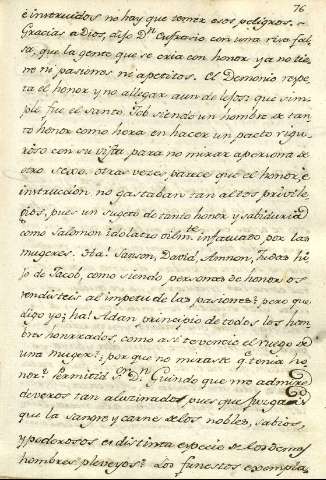 76
é instruidos no hay que temer esos peligros. ~
Gracias a Dios, dijo Dn Eufrasio con una risa fal
sa, que la gente que se cria con honor ya no tie
ne ni pasiones ni apetitos. El Demonio respe
ta el honor y no allegar aun de lejos! que sim
ple fue el santo Job siendo un hombre de tan
to honor como hera en hacer un pacto rigu
roso con su vista para no mirar a persona de
otro sexo. otras veces parece que el honor, e
instruccion no gastaban tan altos privile
gios, pues un sugeto de tanto honor y sabiduria
como Salomon idolatro vilmte infatuado por las
mugeres. Ha! Sanson, David, Amnon, Judas hi
jo de Jacob, como siendo personas de honor os
rendisteis al impetu de las pasiones? pero que
digo yo? ha! Adan principio de todos los hom
bres honrrados, como asi te vencio el ruego de
una muger? por que no miraste q.e tenia ho
nor? Permitid Dn Guindo que me admire
de veros tan aluzinado pues que juzgais
que la sangre y carne de los nobles, sabios,
y poderosos es distinta especie de los demas
hombres pleveyos? Los funestos exempla